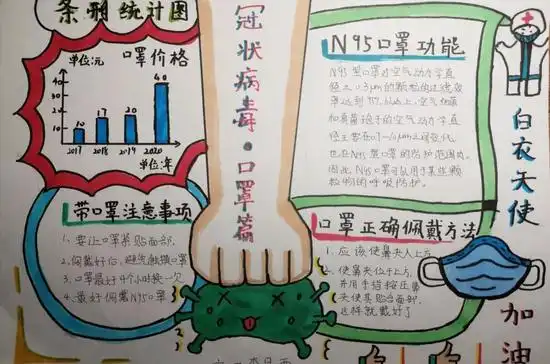 条形统计图
单位:元 口罩价格
40
10 17 20
2017 2018 2019 2020
单位:年
冠状病毒·口罩篇
N95口罩功能
N95型口罩对空气动力学直
径≥0.3μm的颗粒的过滤效
率达到95%以上,空气细菌
和真菌孢子的空气动力学直
径主要在0.7-10μm之间变化,
也在N95型口罩的防护范围内。
因此,N95口罩可以用于某些颗
粒物的呼吸防护。
白衣天使
带口罩注意事项
1.要让口罩紧贴面部.
2.佩戴好后,避免触摸口罩
3.口罩最好4个小时换一次
4.最好佩戴N95口罩
口罩正确佩戴方法
1.应该使鼻夹入上方
2.使鼻夹位于上方,
并用手指按压鼻
夹使其贴合面部,
这样就戴好了
加油